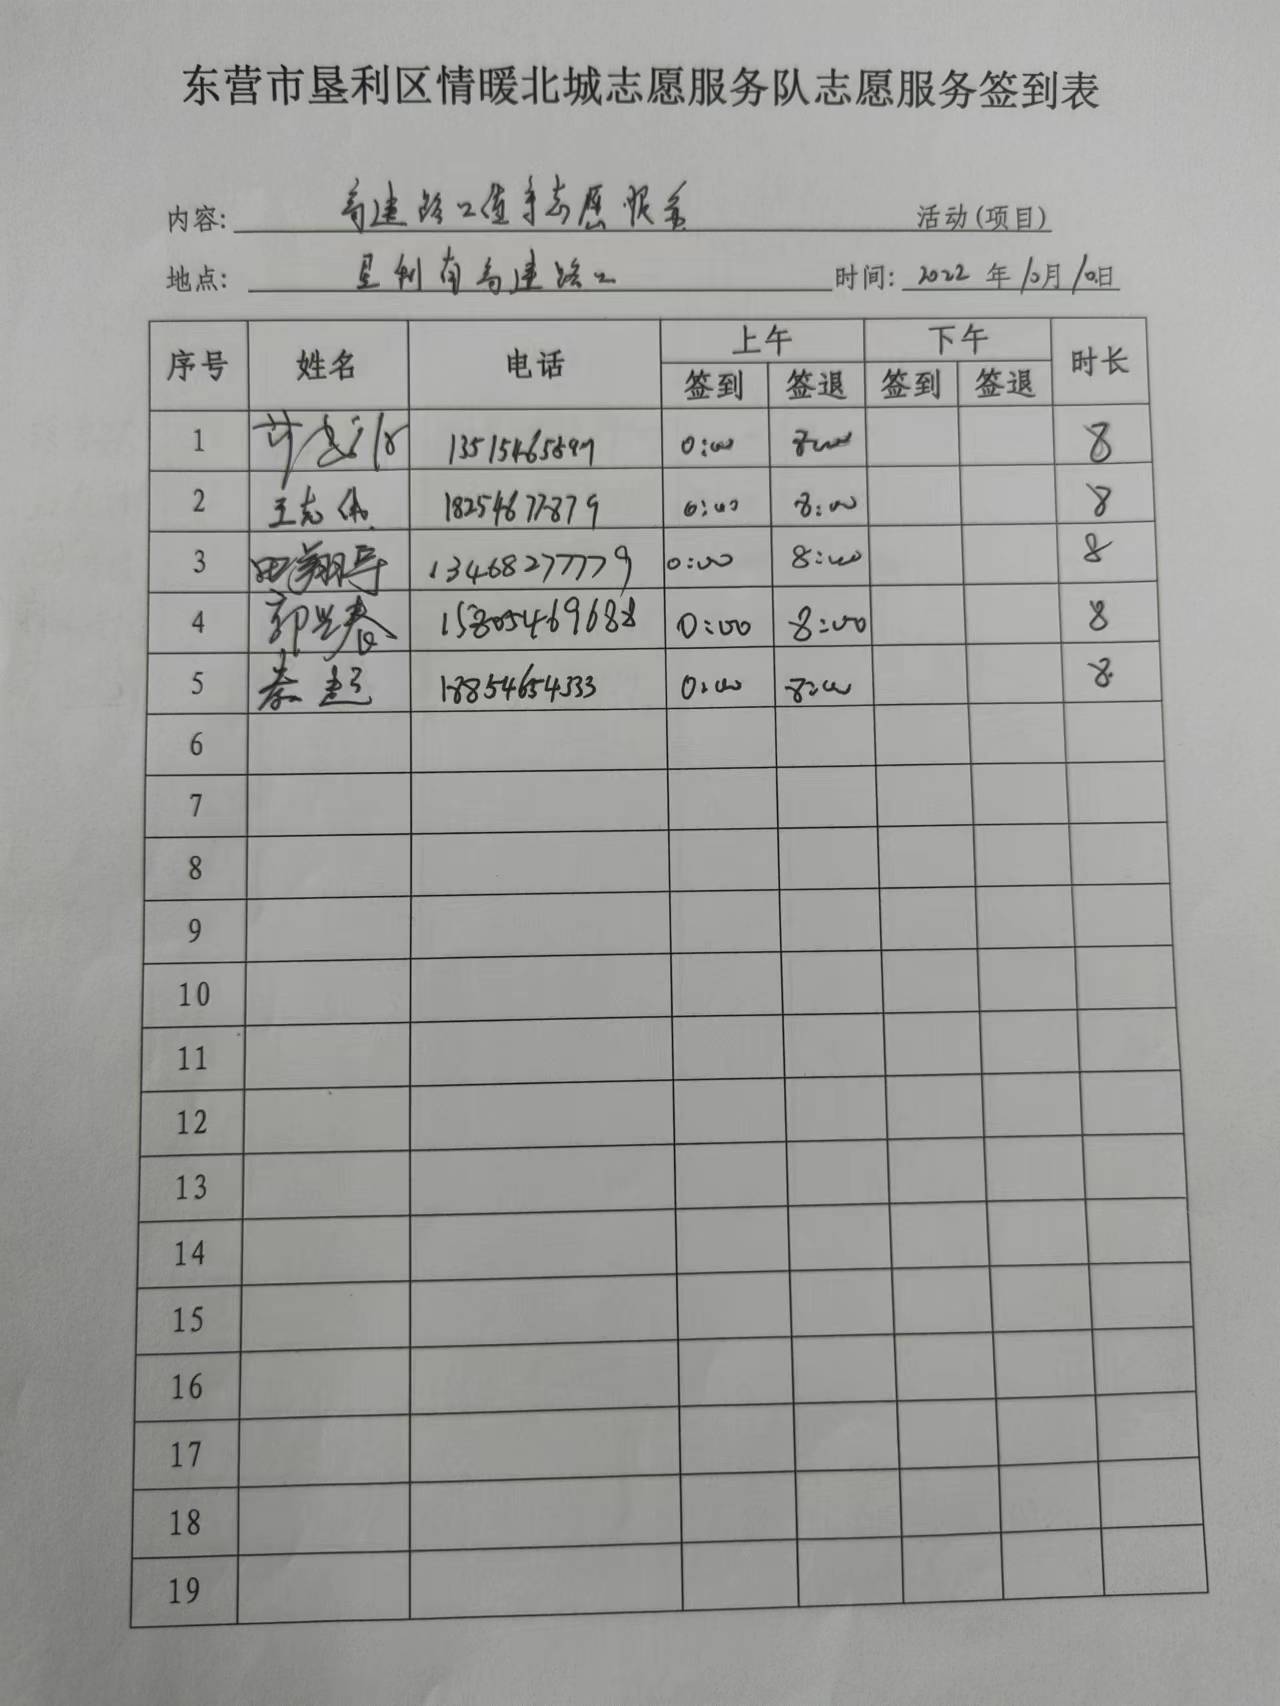 东营市垦利区情暖北城志愿服务队志愿服务签到表
内容: 高速路口值守志愿服务 活动(项目)
地点: 垦利南高速路口 时间: 2022 年 10月 10日
序号 姓名 电话 上午 下午 时长
签到 签退 签到 签退
1 13515465897 0:00 8:00 8
2 王志伟 18254677879 0:00 8:00 8
3 田翔宇 13468277779 0:00 8:00 8
4 郭兴春 15805469688 0:00 8:00 8
5 秦超 18854654333 0:00 8:00 8
6
7
8
9
10
11
12
13
14
15
16
17
18
19